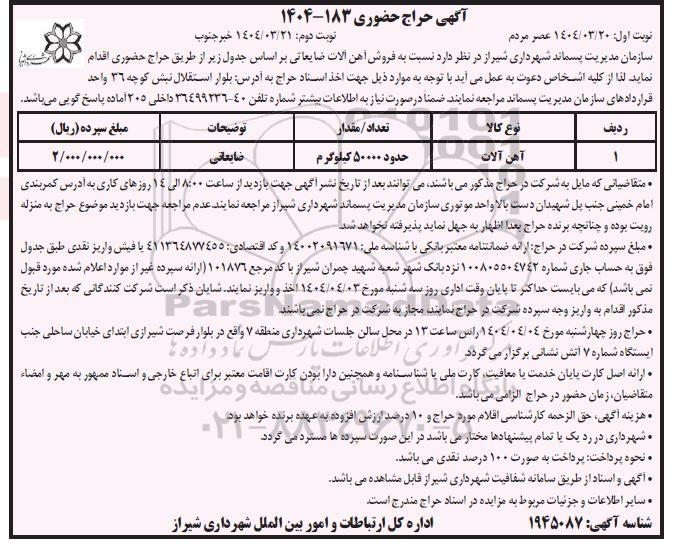 آگهی حراج حضوری ۱۸۳-۱۴۰۴
نوبت اول: ۱۴۰۴/۰۳/۲۰ عصر مردم نوبت دوم: ۱۴۰۴/۰۳/۲۱ خبرجنوب
سازمان مدیریت پسماند شهرداری شیراز در نظر دارد نسبت به فروش آهن آلات ضایعاتی بر اساس جدول زیر از طریق حراج حضوری اقدام
نماید. لذا از کلیه اشخاص دعوت به عمل می آید با توجه به موارد ذیل جهت اخذ اسناد حراج به آدرس: بلوار استقلال نبش کوچه ۳۶ واحد
قراردادهای سازمان مدیریت پسماند مراجعه نمایند. ضمنا درصورت نیاز به اطلاعات بیشتر شماره تلفن ۴۰-۳۶۴۹۹۲۳۶ داخلی ۲۰۵ آماده پاسخ گویی می‌باشد.
ردیف نوع کالا تعداد/مقدار توضیحات مبلغ سپرده (ریال)
۱ آهن آلات حدود ۵۰۰۰۰ کیلوگرم ضایعاتی ۲/۰۰۰/۰۰۰/۰۰۰
• متقاضیانی که مایل به شرکت در حراج مذکور می باشند، می توانند بعد از تاریخ نشر آگهی جهت بازدید از ساعت ۸:۰۰ الی ۱۴ روزهای کاری به آدرس کمربندی
امام خمینی جنب پل شهیدان دست بالا واحد موتوری سازمان مدیریت پسماند شهرداری شیراز مراجعه نمایند. عدم مراجعه جهت بازدید موضوع حراج به منزله
رویت بوده و چنانچه برنده حراج بعدا اظهار به جهل نماید پذیرفته نخواهد شد.
• مبلغ سپرده شرکت در حراج: ارائه ضمانتنامه معتبر بانکی با شناسه ملی: ۱۴۰۰۲۰۹۱۶۷۱ و کد اقتصادی: ۴۱۱۳۶۴۸۷۷۴۵۵ یا فیش واریز نقدی طبق جدول
فوق به حساب جاری شماره ۱۰۰۸۰۵۵۰۴۷۴۲ نزد بانک شهر شعبه شهید چمران شیراز با کد مرجع ۱۰۱۸۷۶ (ارائه سپرده غیر از موارد اعلام شده مورد قبول
نمی باشد) که می بایست حداکثر تا پایان وقت اداری روز سه شنبه مورخ ۱۴۰۴/۰۴/۰۳ اخذ و واریز نمایند. شایان ذکر است شرکت کنندگانی که بعد از تاریخ
مذکور اقدام به واریز وجه سپرده شرکت در حراج نمایند، مجاز به شرکت در حراج نمی باشند.
• حراج روز چهارشنبه مورخ ۱۴۰۴/۰۴/۰۴ راس ساعت ۱۳ در محل سالن جلسات شهرداری منطقه ۷ واقع در بلوار فرصت شیرازی ابتدای خیابان ساحلی جنب
ایستگاه شماره ۷ آتش نشانی برگزار می گردد.
• ارائه اصل کارت پایان خدمت یا معافیت، کارت ملی یا شناسنامه و همچنین دارا بودن کارت اقامت معتبر برای اتباع خارجی و اسناد ممهور به مهر و امضاء
متقاضیان، زمان حضور در حراج الزامی می باشد.
• هزینه آگهی، حق الزحمه کارشناسی اقلام مورد حراج و ۱۰ درصد ارزش افزوده به عهده برنده خواهد بود.
• شهرداری در رد یک یا تمام پیشنهادها مختار می باشد در این صورت سپرده ها مسترد می گردد.
• نحوه پرداخت: پرداخت به صورت ۱۰۰ درصد نقدی می باشد.
• آگهی و اسناد از طریق سامانه شفافیت شهرداری شیراز قابل مشاهده می باشد.
• سایر اطلاعات و جزئیات مربوط به مزایده در اسناد حراج مندرج است.
شناسه آگهی: ۱۹۴۵۰۸۷ اداره کل ارتباطات و امور بین الملل شهرداری شیراز
ParsNamadData
مرکز فرآوری اطلاعات پارس نماد داده ها
پایگاه اطلاع رسانی مناقصه و مزایده
۰۲۱-۸۸۳۴۹۶۷۰-۵